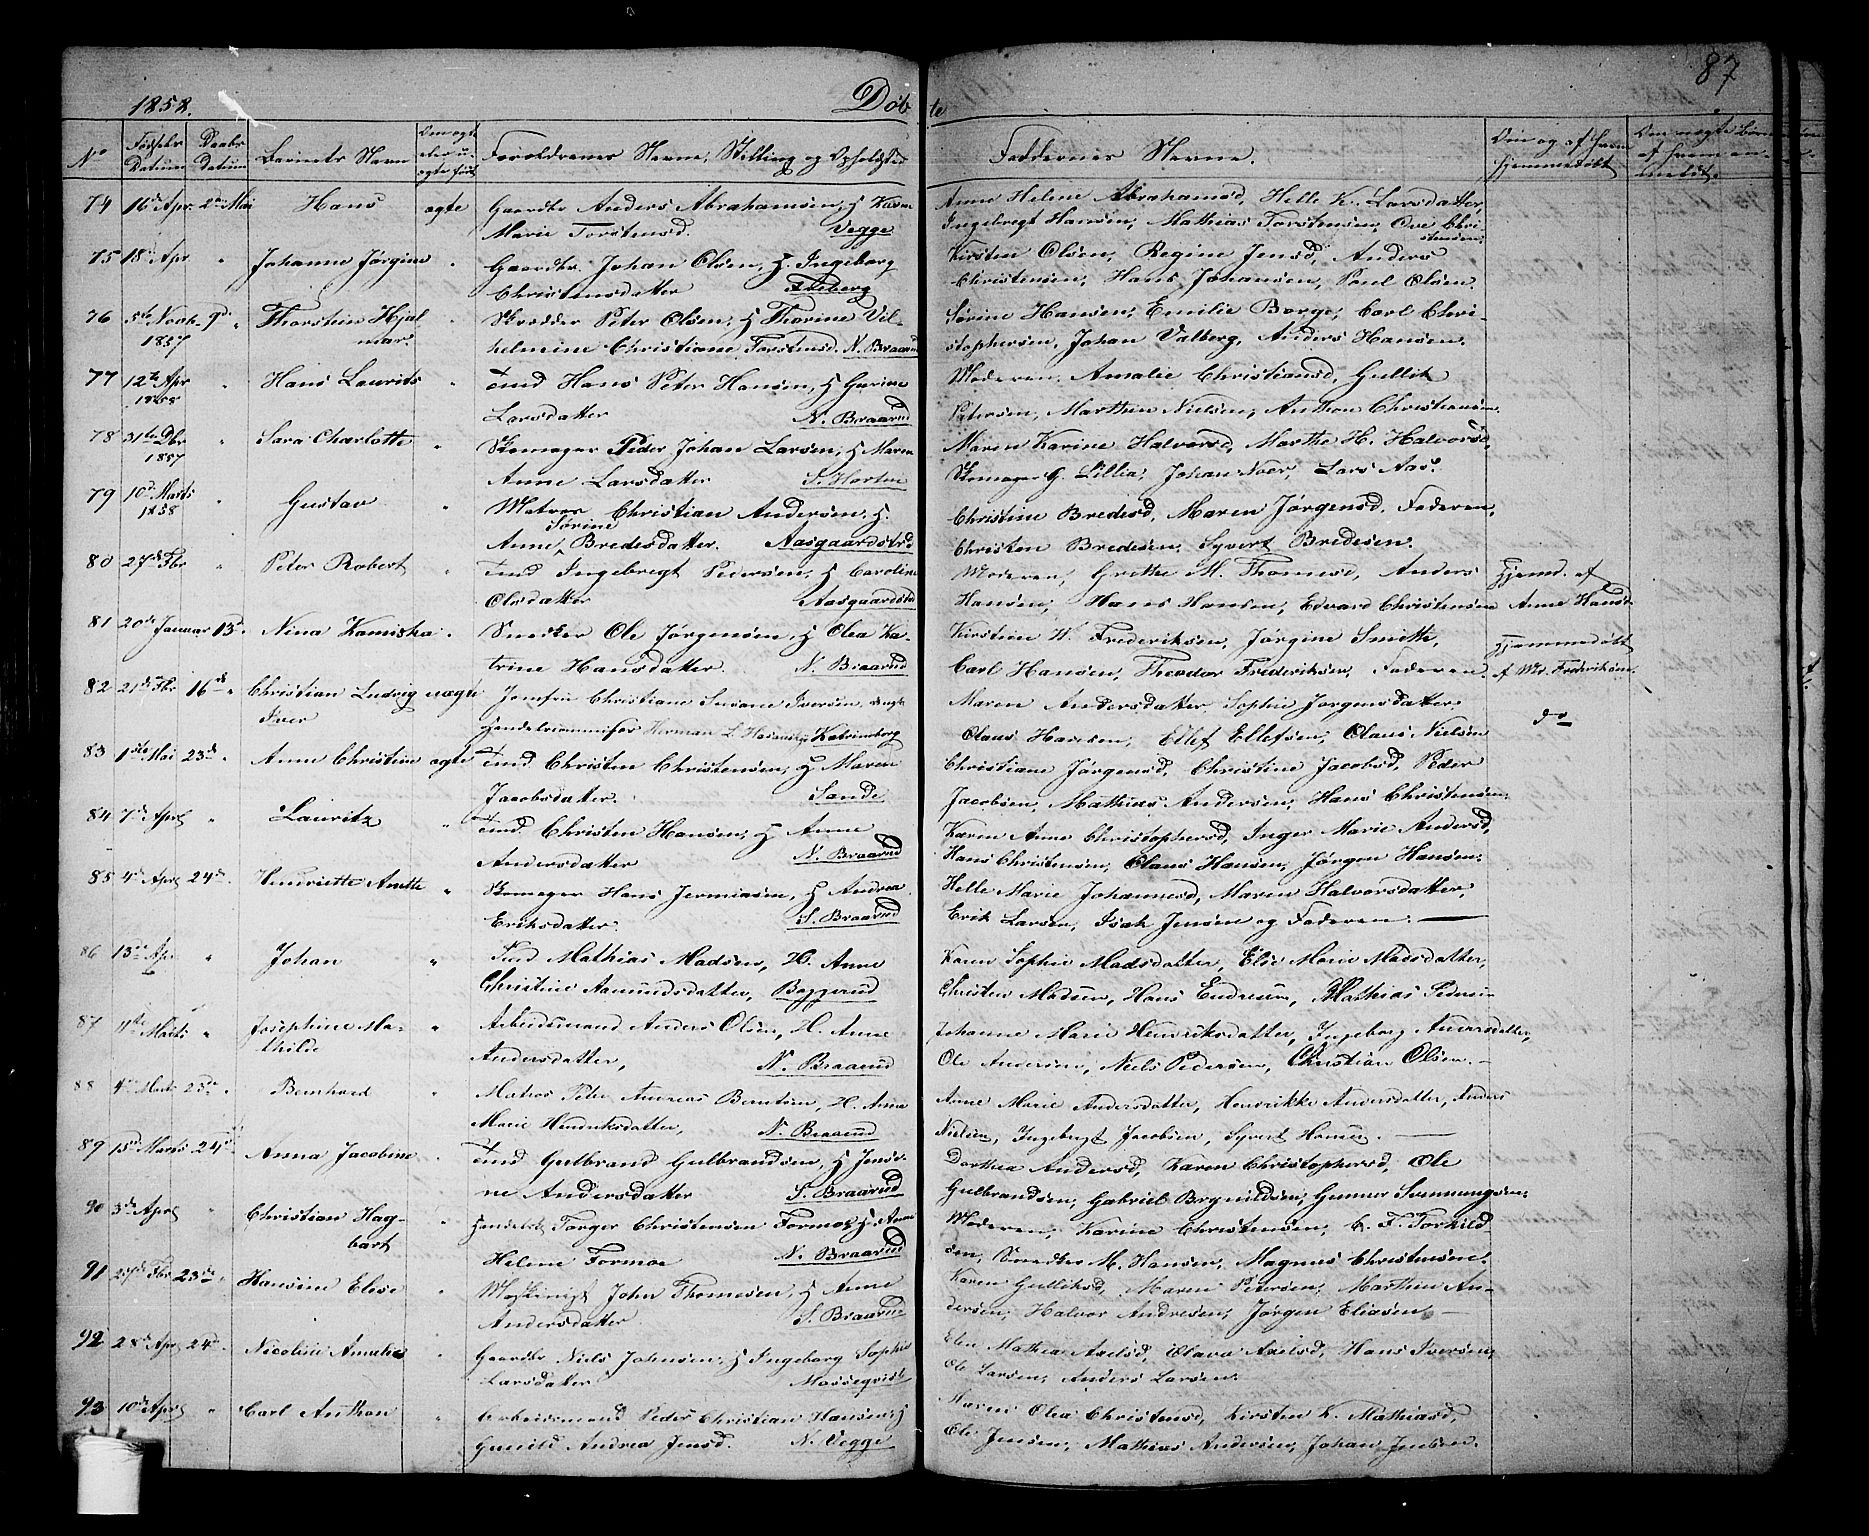 87
1858. Døbte
No Fødsels Datum Daabs Datum Barnets Navn Om ægte eller uægte født Forældrenes Navne, Stilling og Opholdssted Faddernes Navne. Om og af hvem hjemmedøbt
74 16de Apr. 2den Mai Hans ægte Gaardbr Anders Abrahamsen, H Karen Anne Helene Abrahamsd, Helle K. Larsdatter,
Marie Torstensd. Vegge Ingebregt Hansen, Mathias Torstensen, Ove Christensen.
75 18de Apr " Johanne Jørgine " Gaardbr Johan Olsen, H. Ingeborg Kirsten Olsen, Regine Jensd, Anders
Christensdatter Freberg Christensen, Hans Johansen, Poul Olsen.
76 5te Novb. 9d " Thorstein Hjal- " Skrædder Peter Olsen, H Thorine Vil- Sørine Hansen, Emilie Borge, Carl Chri-
1857 mar. helmine Christiane Torstensd. N. Braarud stophersen, Johan Valberg, Anders Hansen.
77 12te Apr " Hans Laurits " Tmd Hans Peter Hansen, H Gurine Moderen, Amalie Christiansd, Gullik
1858 Larsdatter N. Braarud Petersen, Marthin Nielsen, Anthon Christiansen.
78 31te Dbr " Sara Charlotte " Skomager Peder Johan Larsen, H Maren Maren Karine Halvorsd, Marthe H. Halvorsd.
1857 Anne Larsdatter Skomager G. Lillia, Johan Noer, Lars Aas.
79 10de Marts " Gustav " Matros Christian Andersen, H. Christine Bredesd, Maren Jørgensd, Faderen,
1858 Anne Sørine Bredesdatter. Aasgaardstrd Christen Bredesen, Syvert Bredesen.
80 27de Fbr " Peter Robert " Tmd Ingebregt Pedersen, H Caroline Moderen, Grethe M. Thomesd, Anders Hjemd. af
Olsdatter Aasgaardstrd Hansen, Hans Hansen, Edvard Christensen Anne Hansd
81 20de Januar 13d. Nina Kamista " Snedker Ole Jørgensen, H Olea Ka- Kirstine W. Frederiksen, Jørgine Smith, Hjemmedøbt
trine Hansdatter. N. Braarud Carl Hansen, Theodor Frederiksen, Faderen. af Md. Frederiksen.
82 21de Fbr 16de " Christian Ludvig uægte Jomfru Christiane Susane Iversen, Maren Andersdatter Sophie Jørgensdatter do
Iver Herman L. Katrineborg Olaus Hansen, Ellef Ellefsen, Olaus Nielsen
83 1ste Mai 23de " Anne Christine ægte Tmd Christen Christensen, H Maren Christiane Jørgensd, Christine Jacobsd, Peder
Jacobsdatter. Sande Jacobsen, Mathias Andersen, Hans Christensen.
84 7de April " Lauritz " Tmd. Christen Hansen, H Anne Karen Anne Christophersd, Inger Marie Andersd,
Andersdatter N. Braarud Hans Christensen, Olaus Hansen, Jørgen Hansen.
85 4de April 24de. Henriette Anette " Skomager Hans Jermiasen, H Andrea Helle Marie Johannesd, Maren Halvorsdatter,
Eriksdatter. S. Braarud Erik Larsen, Isak Jensen og Faderen.
86 13de Apr " Johan " Tmd Mathias Madsen, H. Anne Karen Sophie Madsdatter, Else Marie Madsdatter,
Christine Aamundsdatter, Baggerud Christen Madsen, Hans Endresen, Mathias Pedersen
87 11te Marts " Josephine Ma- " Arbeidsmand Anders Olsen, H. Anne Johanne Marie Henriksdatter, Ingeborg Andersdatter,
thilde Andersdatter, N. Braarud Ole Andersen, Niels Pedersen, Christian Olsen.
88 4de Marts 23de " Bernhard " Matros Peter Andreas Berntsen, H. Anne Anne Marie Andersdatter, Henrikke Andersdatter, Anders
Marie Henriksdatter, N. Braarud Nielsen, Ingebregt Jacobsen, Syvert Hansen.
89 15de Marts 24de. Anna Jacobine " Tmd Gulbrand Gulbrandsen, H Jensi- Dorthea Andersd, Karen Christophersd, Ole
ne Andersdatter S. Braarud Gulbrandsen, Gabriel Brynildsen, Gunner Svennungsen.
90 3de April " Christian Hag- " Handelsb. Torger Christensen Formoe H. Anne Moderen, Karine Christensen, C. F. Torkild-
bart Helene Formoe N. Braarud sen, Snedker M. Hansen, Magnus Christensen.
91 27de Fbr 23de " Hansine Elise " John Thomesen, H Anne Karen Gulliksd, Maren Petersen, Marthin An-
Andersdatter. S. Braarud dersen, Halvor Andresen, Jørgen Eliasen
92 28de April 24de " Nicoline Amalie " Gaardbr Niels Johnsen, H Ingeborg Sophie Elen Mathea Axelsd, Olava Axelsd, Hans Iversen,
Larsdatter Massequist Ole Larsen, Anders Larsen.
93 10de April " Carl Anthon " Arbeidsmand Peder Christian Hansen, H Maren Olea Christensd, Kirsten K. Mathiasd,
Gunild Andrea Jensd. N. Vegge Ole Jensen, Mathias Andersen, Johan Jensen.